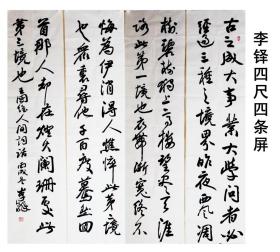 李铎四尺四条屏
古之成大事業大學問者必
經過三種之境界昨夜西風凋
碧樹獨上高樓望盡天涯
路此第一境也衣帶漸寬終不
悔為伊消得人憔悴此第二境
也衆裏尋他千百度驀然回
首那人却在燈火闌珊處此
第三境也 王國維人間詞話 李鐸